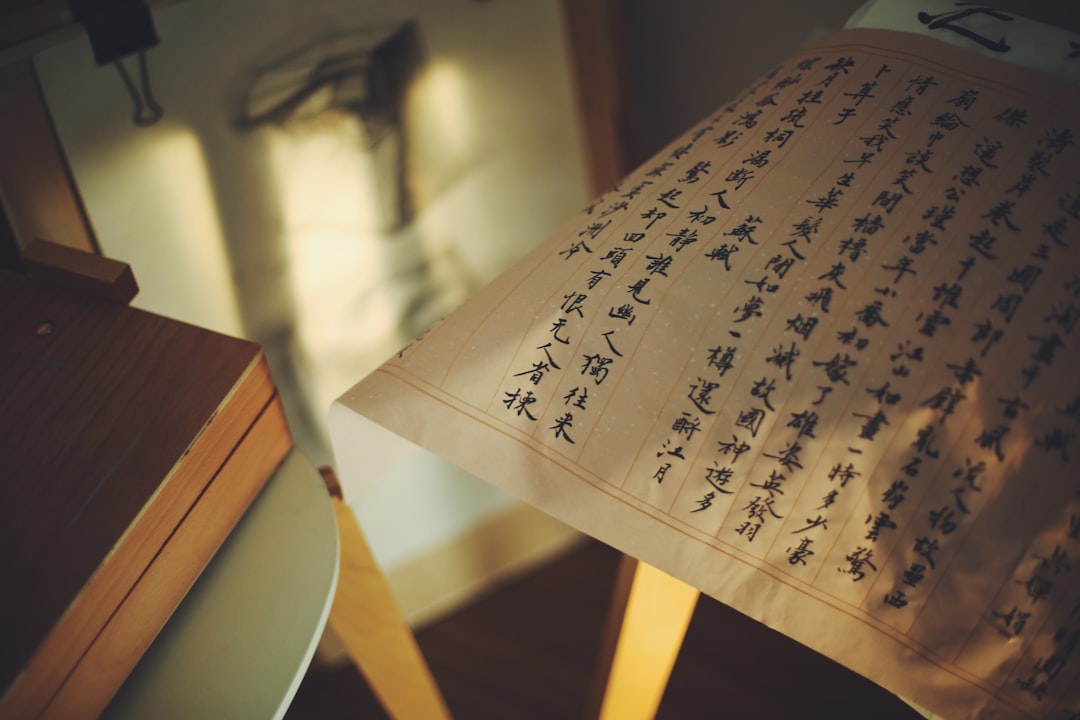 淘盡千古風流人物故壘西
道是三國周郎赤壁亂石崩雲驚
濤裂岸卷起千堆雪江山如畫一時多少豪
傑遥想公瑾當年小喬初嫁了雄姿英發羽
扇綸巾談笑間檣櫓灰飛烟滅故國神遊多
情應笑我早生華髮人間如夢一樽還酹江月
卜算子 蘇軾
缺月挂疏桐漏斷人初靜誰見幽人獨往来
縹緲孤鴻影 驚起却回頭有恨无人省揀
盡寒枝 沙洲冷